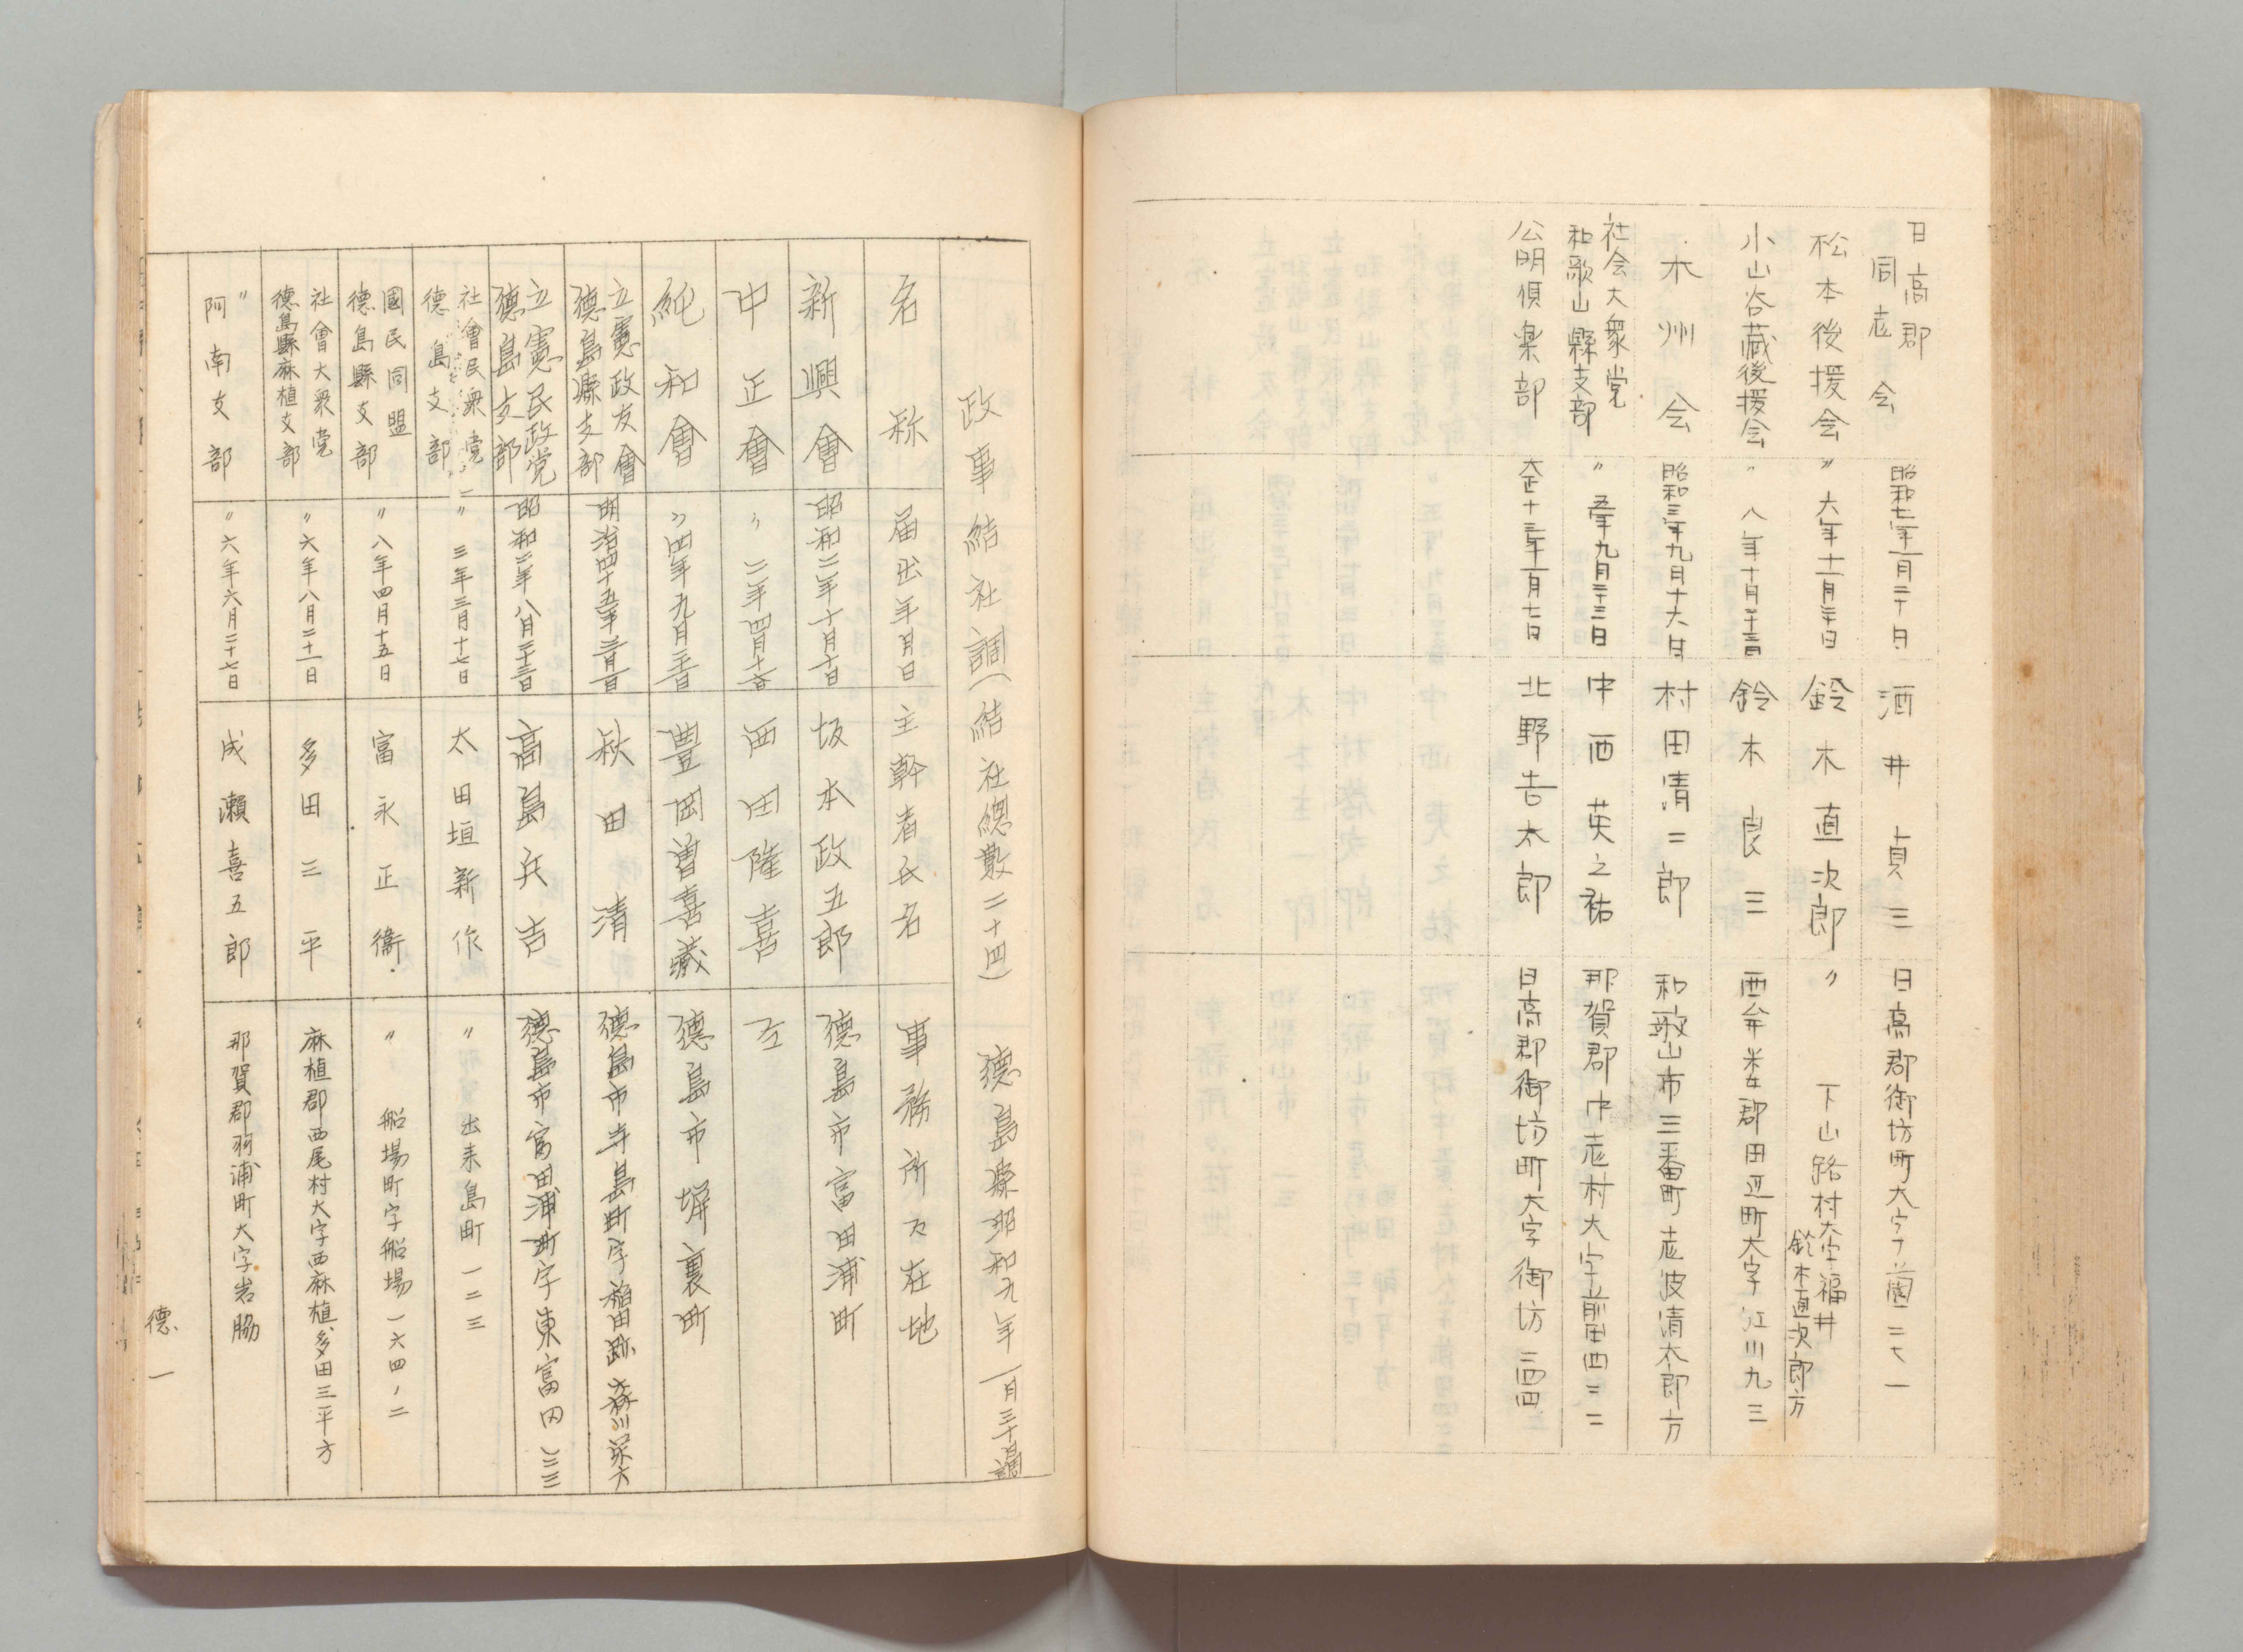 日高郡
同志会
昭和七年一月二十日
酒井貞三
日高郡御坊町大字薗二七一
松本後援会
〃六年十一月二十日
鈴木直次郎
〃 下山路村大字福井
鈴木直次郎方
小山谷蔵後援会
〃八年十月二十三日
鈴木良三
西牟婁郡田辺町大字江川九三
木州会
昭和三年九月十六日
村田清二郎
和歌山市三番町志波清太郎方
社会大衆党
和歌山縣支部
〃五年九月二十三日
中西英之祐
那賀郡中志村大字前田四三二
公明倶楽部
大正十三年一月七日
北野吉太郎
日高郡御坊町大字御坊三四四
政事結社調(結社總数二十四) 德島縣昭和九年一月三十日調
名称
届出年月日
主幹者氏名
事務所々在地
新興會
昭和二年十月十日
坂本政五郎
德島市富田浦町
中正會
〃二年四月十六日
西田隆喜
仝
純和會
〃四年九月二十日
豊岡曽喜藏
德島市塀裏町
立憲政友會
德島縣支部
明治四十五年三月一日
秋田清
德島市寺島町字稲田跡
立憲民政党
德島支部
昭和二年八月二十三日
高島兵吉
德島市富田浦町字東富田
社會民衆党
德島支部
〃三年三月十七日
太田垣新作
〃出来島町一二三
國民同盟
德島縣支部
〃八年四月十五日
富永正衞
〃船場町字船場一六四ノ二
社會大衆党
德島縣麻植支部
〃六年八月二十一日
多田三平
麻植郡西尾村大字西麻植多田三平方
〃
阿南支部
〃六年六月二十七日
成瀬喜五郎
那賀郡羽浦町大字岩脇
德一